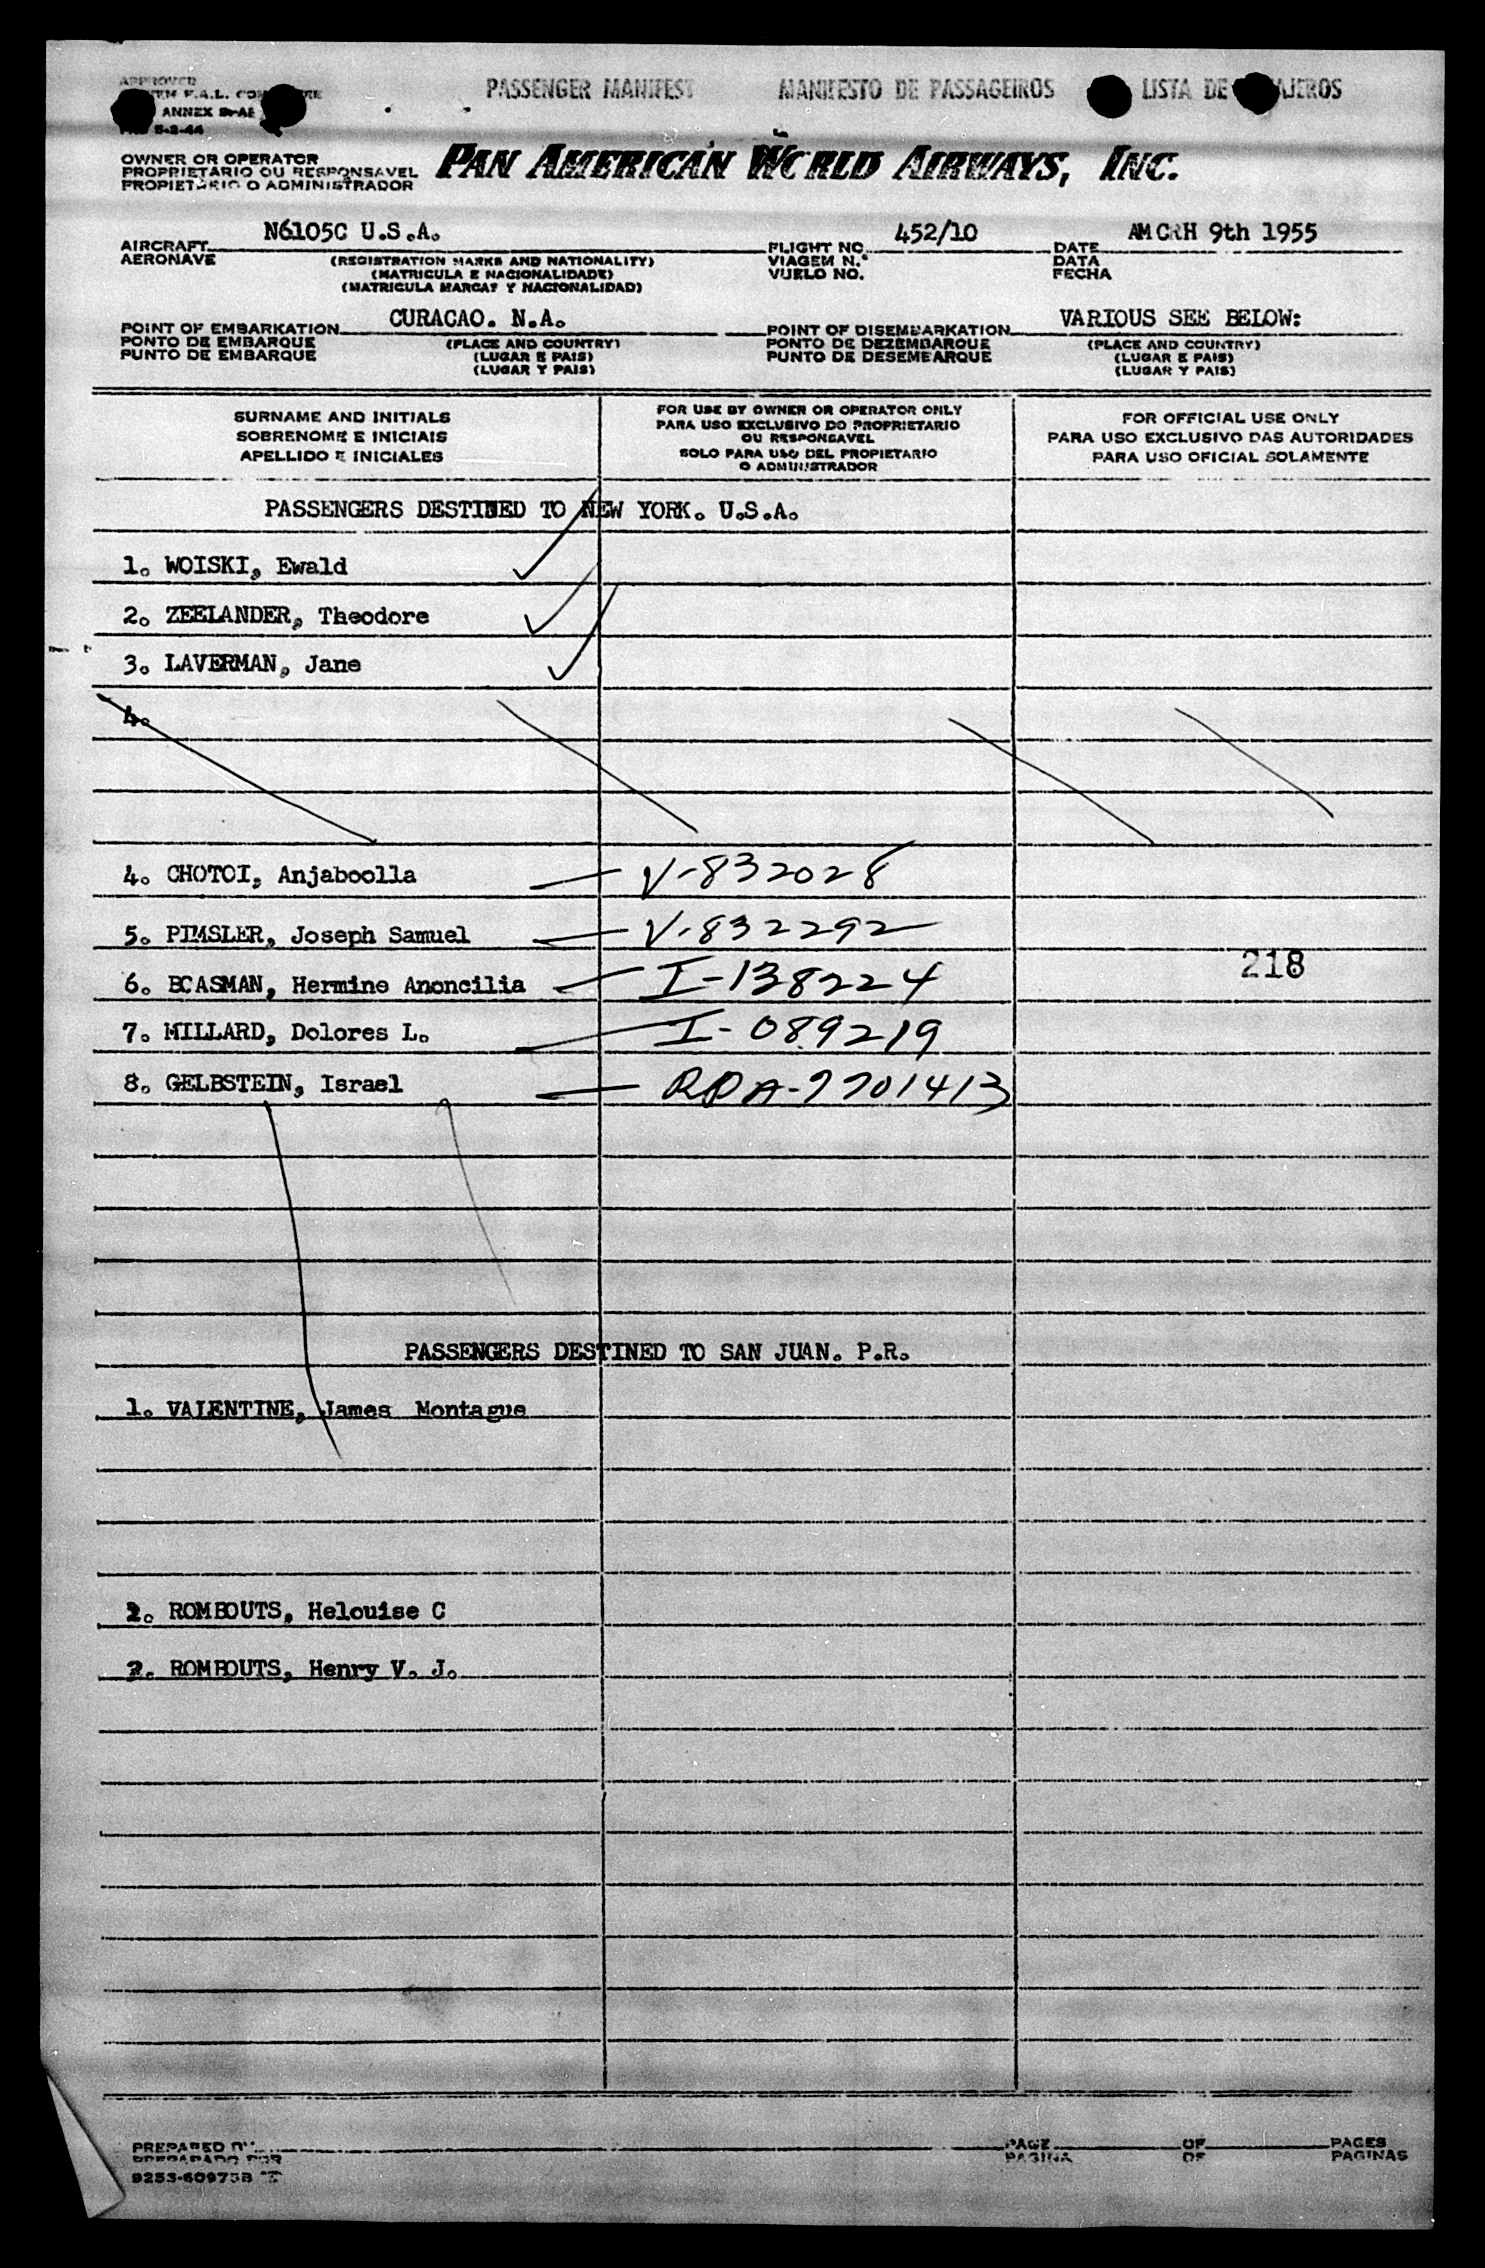 APPROVED
F.A.L.
ANNEX
5-2-44
PASSENGER MANIFEST MANIFESTO DE PASSAGEIROS LISTA DE
OWNER OR OPERATOR
PROPRIETARIO OU RESPONSAVEL
PROPIETARIO O ADMINISTRADOR
PAN AMERICAN WORLD AIRWAYS, INC.
AIRCRAFT N6105C U.S.A. FLIGHT NO. 452/10 DATE 9th 1955
AERONAVE (REGISTRATION MARKS AND NATIONALITY) VIAGEM N.º DATA
(MATRICULA E NACIONALIDADE) VUELO NO. FECHA
(MATRICULA MARCAS Y NACIONALIDAD)
POINT OF EMBARKATION CURACAO. N.A. POINT OF DISEMBARKATION VARIOUS SEE BELOW:
PONTO DE EMBARQUE (PLACE AND COUNTRY) PONTO DE DEZEMBARQUE (PLACE AND COUNTRY)
PUNTO DE EMBARQUE (LUGAR E PAIS) PUNTO DE DESEMBARQUE (LUGAR E PAIS)
(LUGAR Y PAIS) (LUGAR Y PAIS)
SURNAME AND INITIALS
SOBRENOME E INICIAIS
APELLIDO E INICIALES
FOR USE BY OWNER OR OPERATOR ONLY
PARA USO EXCLUSIVO DO PROPRIETARIO
OU RESPONSAVEL
SOLO PARA USO DEL PROPIETARIO
O ADMINISTRADOR
FOR OFFICIAL USE ONLY
PARA USO EXCLUSIVO DAS AUTORIDADES
PARA USO OFICIAL SOLAMENTE
PASSENGERS DESTINED TO NEW YORK. U.S.A.
1. WOISKI, Ewald
2. ZEELANDER, Theodore
3. LAVERMAN, Jane
4.
4. CHOTOI, Anjaboolla V-832028
5. PIMSLER, Joseph Samuel V-832292
218
6. BOASMAN, Hermine Anoncilia I-138224
7. MILLARD, Dolores L. I-089219
8. GELBSTEIN, Israel RPA-7701413
PASSENGERS DESTINED TO SAN JUAN. P.R.
1. VALENTINE, James Montague
2. ROMBOUTS, Helouise C
2. ROMBOUTS, Henry V. J.
PREPARED BY PAGE OF PAGES
PREPARADO POR PAGINA DE PAGINAS